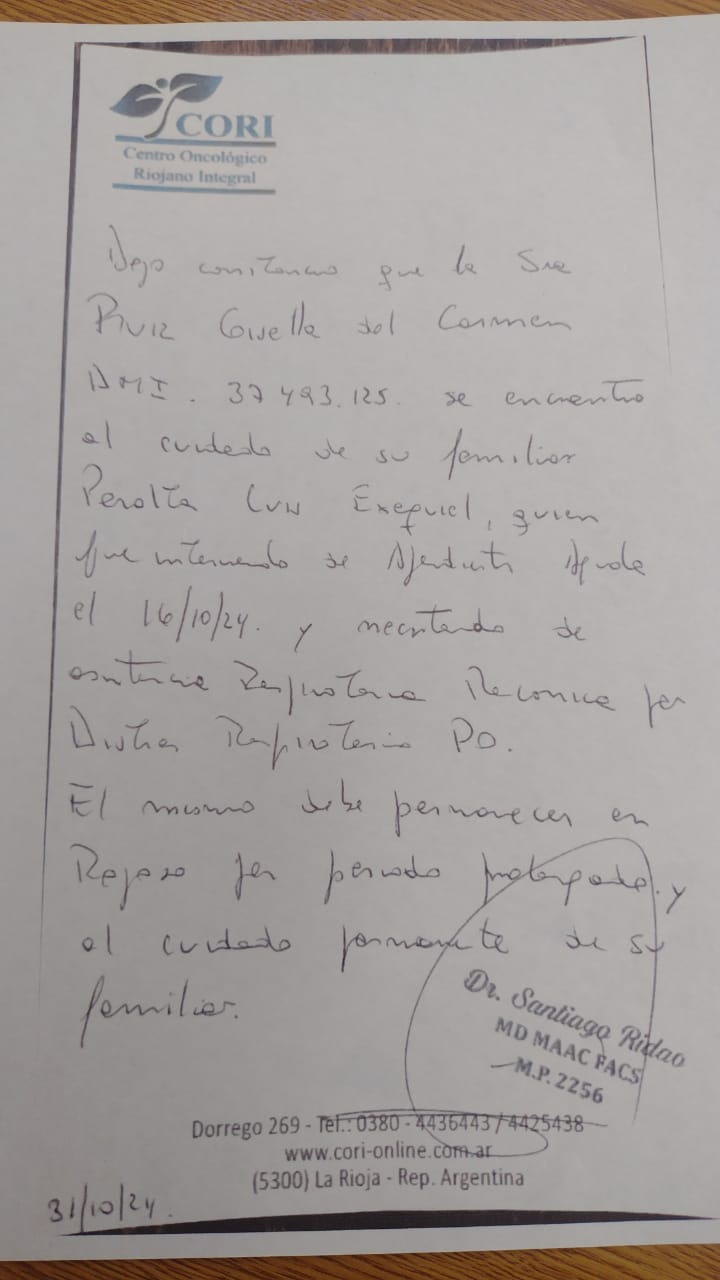 CORI
Centro Oncológico
Riojano Integral
Dejo constancia que la Sra
Ruiz Gisella del Carmen
DNI. 37 493.125. se encuentra
al cuidado de su familiar
Peralta Luis Exequiel, quien
fue internado de Apendicitis Aguda
el 16/10/24. y necesitando de
asistencia Respiratoria Mecanica por
Distres Respiratorio PO.
El mismo debe permanecer en
Reposo por periodo prolongado. y
al cuidado permanente de su
familiar.
Dr. Santiago Ridao
MD MAAC FACS
M.P. 2256
Dorrego 269 - Tel.: 0380 - 4436443 / 4425438
www.cori-online.com.ar
(5300) La Rioja - Rep. Argentina
31/10/24.